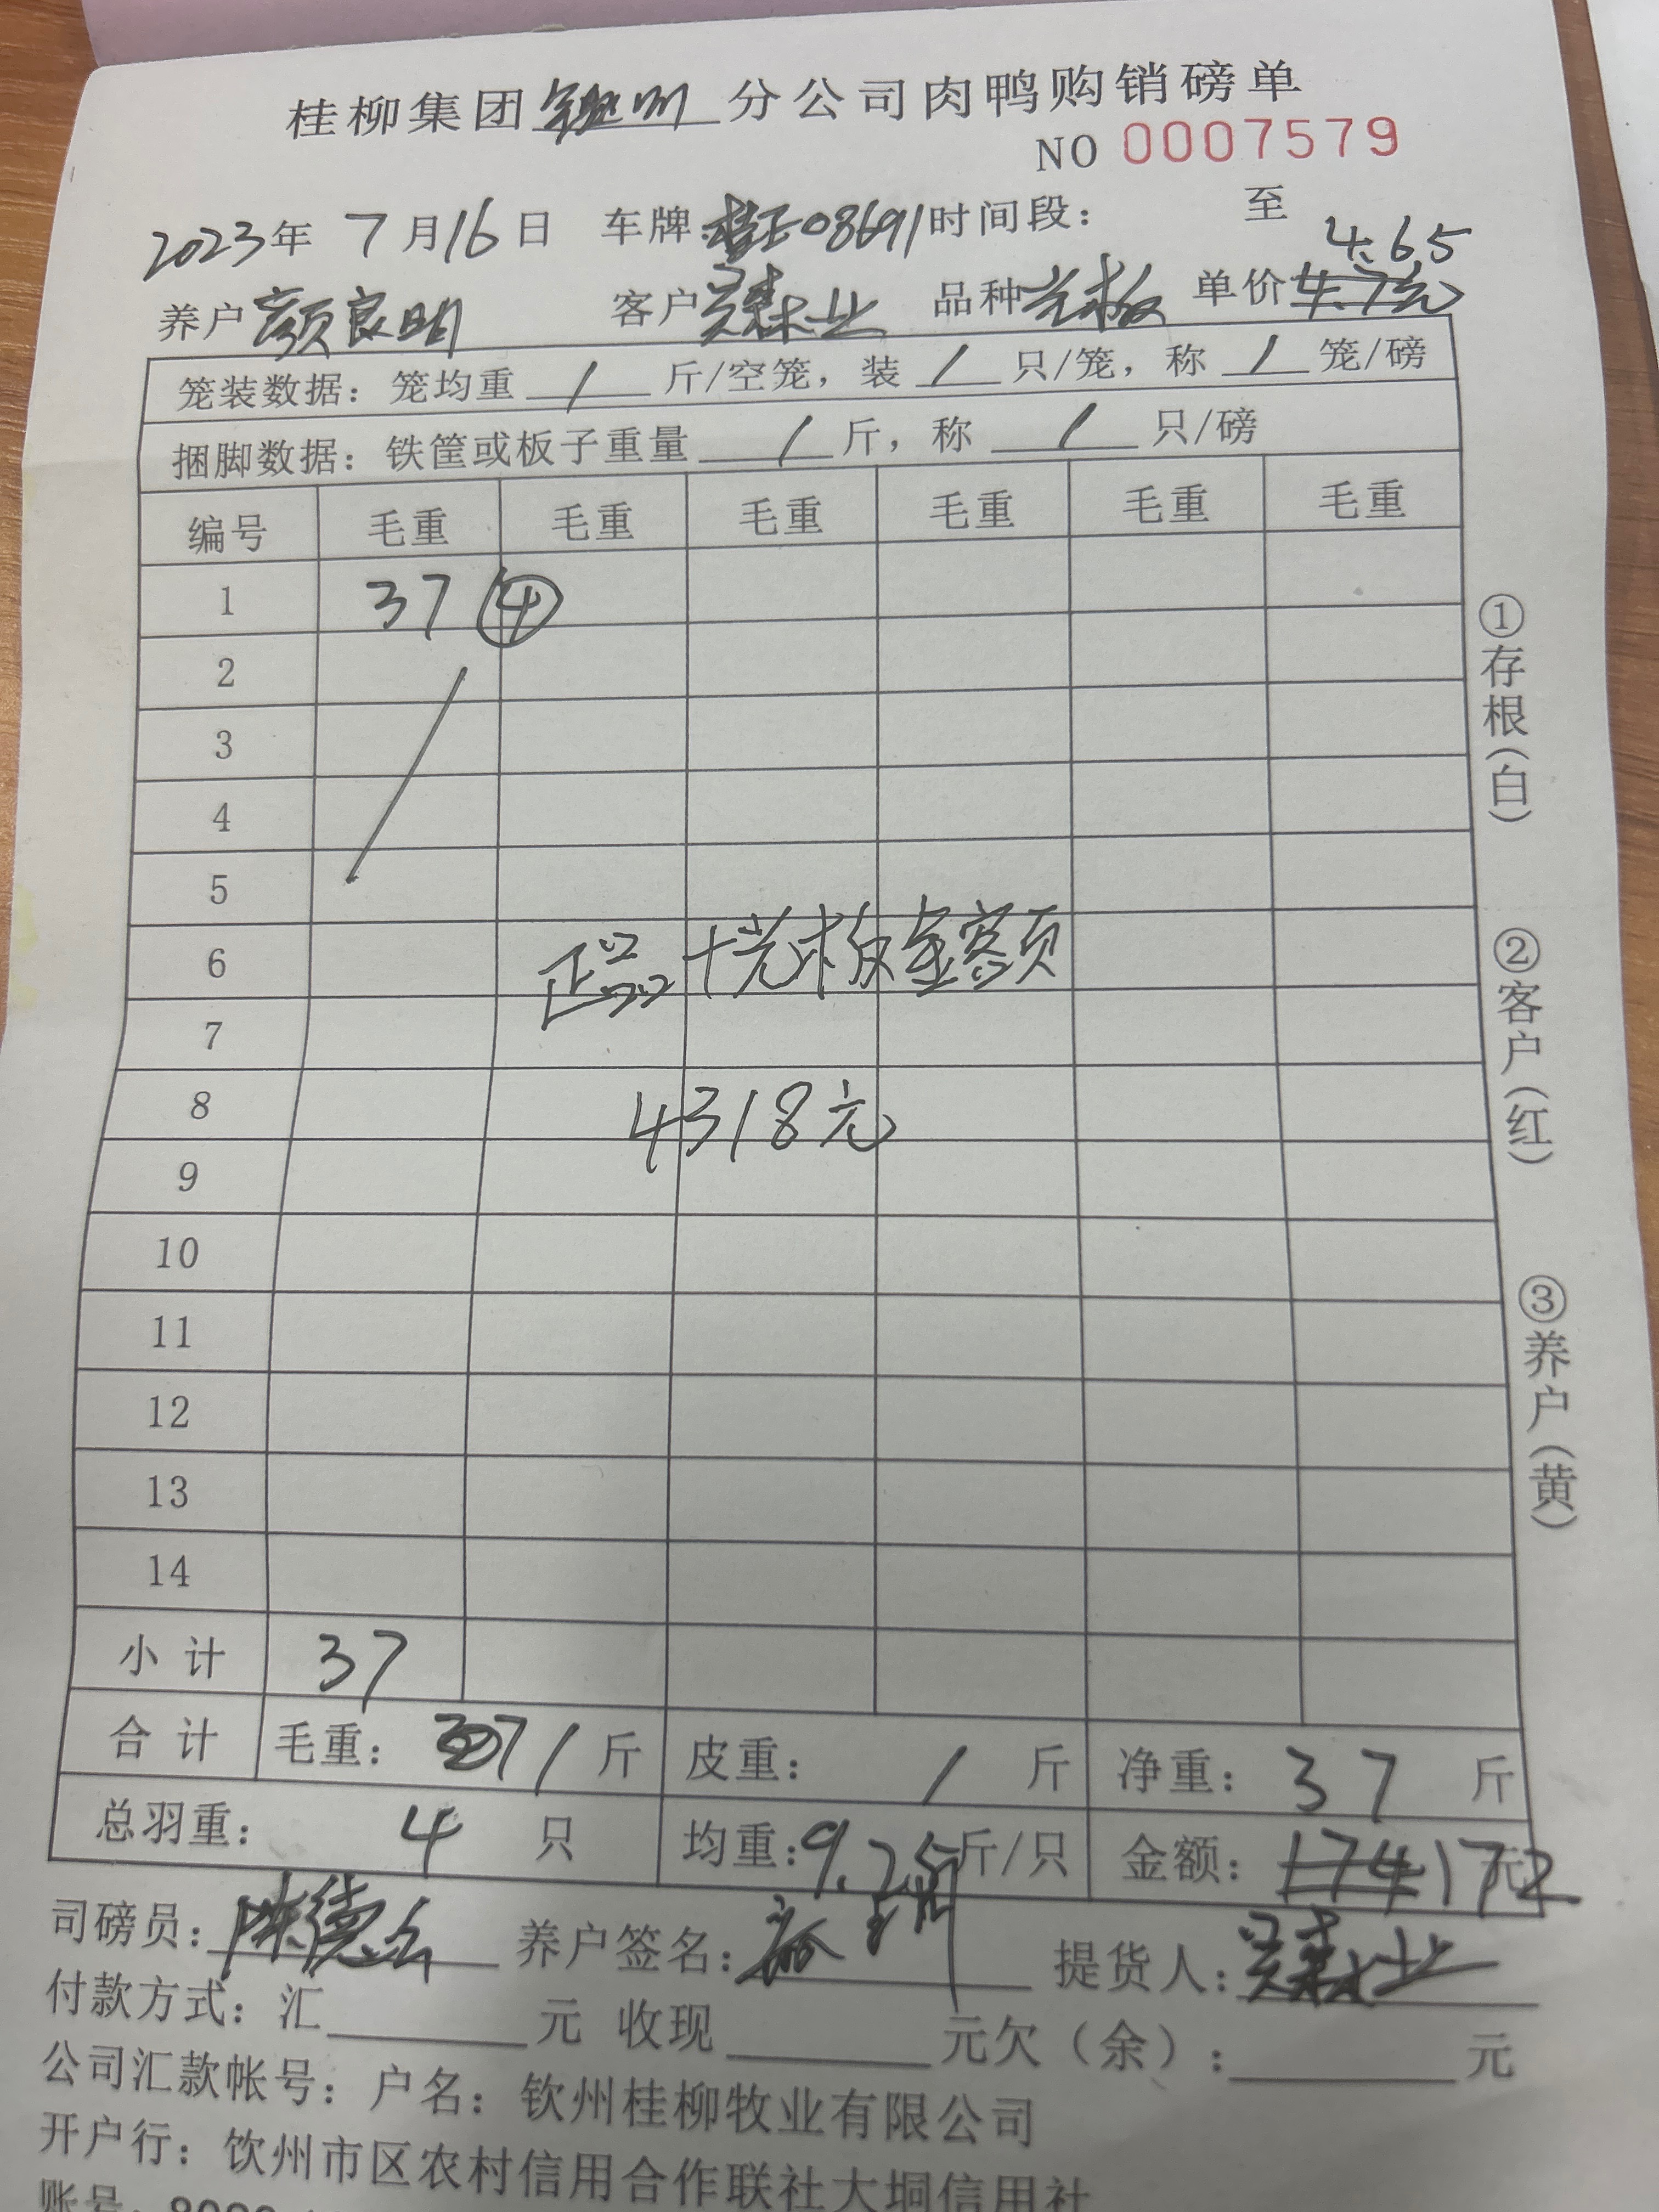 桂柳集团钦州分公司肉鸭购销磅单
NO 0007579
2023年 7月16日 车牌:桂E08691时间段: 至
4.65
养户颜良明 客户吴森业 品种光板 单价4.7元
笼装数据:笼均重 / 斤/空笼,装 / 只/笼,称 / 笼/磅
捆脚数据:铁筐或板子重量 / 斤,称 / 只/磅
编号 毛重 毛重 毛重 毛重 毛重 毛重
1 37 ④
2
3
4
5
6 正品+光板金额
7
8 4318元
9
10
11
12
13
14
小计 37
合计 毛重: 37/斤 皮重: / 斤 净重: 37 斤
总羽重: 4 只 均重:9.25斤/只 金额: 174 172元
司磅员: 养户签名: 提货人:吴森业
付款方式:汇 元 收现 元欠(余): 元
公司汇款帐号:户名:钦州桂柳牧业有限公司
开户行:钦州市区农村信用合作联社大垌信用社
账号:
①存根(白)
②客户(红)
③养户(黄)